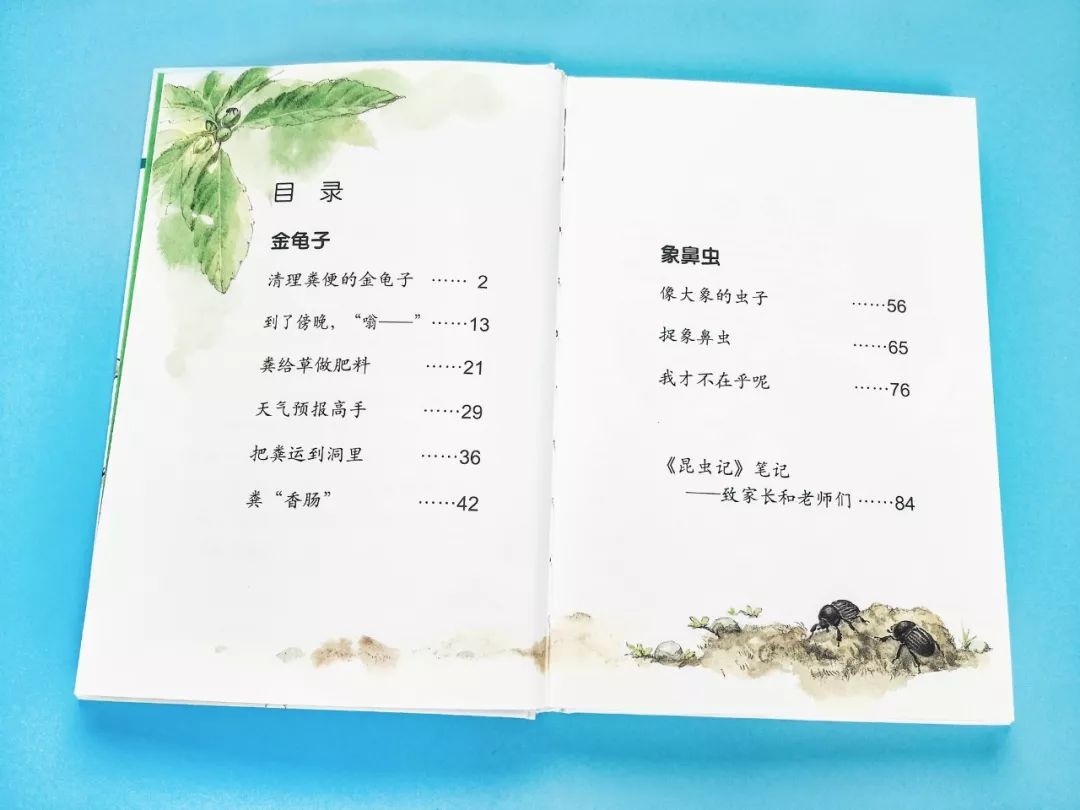 目 录
金龟子
清理粪便的金龟子 ……2
到了傍晚，“嗡——” ……13
粪给草做肥料 ……21
天气预报高手 ……29
把粪运到洞里 ……36
粪“香肠” ……42
象鼻虫
像大象的虫子 ……56
捉象鼻虫 ……65
我才不在乎呢 ……76
《昆虫记》笔记
——致家长和老师们 ……84